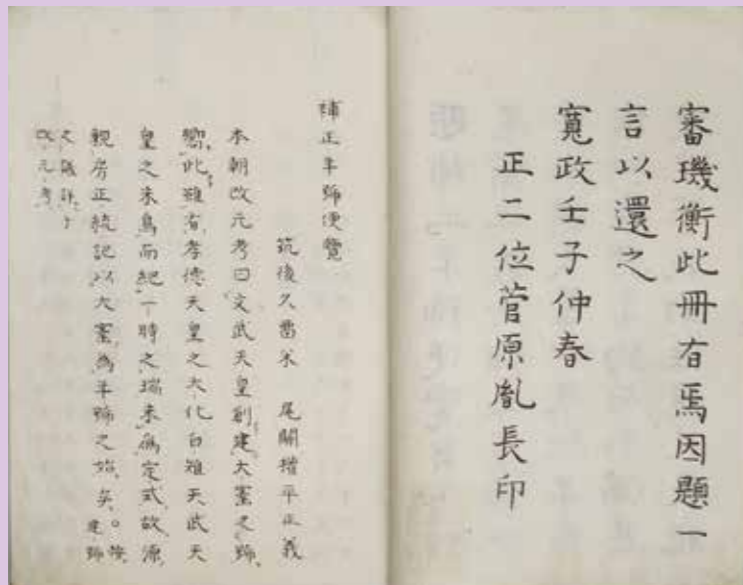 審璣衡此冊有焉因題一
言以還之
寛政壬子仲春
正二位菅原胤長印
補正年號便覽
筑後久留米 尾關權平正義
本朝改元考曰文武天皇創建大寳之號
此雖有孝德天皇之大化白雉天武天
皇之朱鳥而紀一時之瑞未爲定式故源
親房正統記以大寳爲年號之始矣。建號
之議詳于
改元考